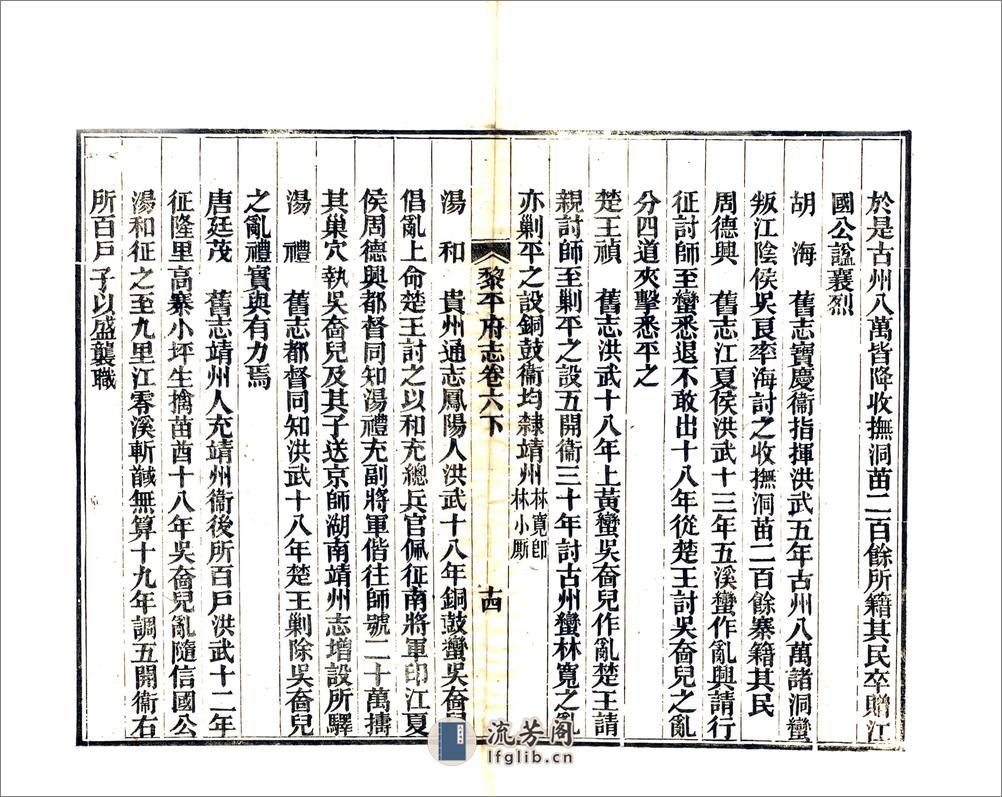 於是古州八萬皆降收撫洞苗二百餘所籍其民卒贈江
國公諡襄烈
胡海　舊志寶慶衞指揮洪武五年古州八萬諸洞蠻
叛江陰侯吳良率海討之收撫洞苗二百餘寨籍其民
周德興　舊志江夏侯洪武十三年五溪蠻作亂興請行
征討師至蠻悉退不敢出十八年從楚王討吳奤兒之亂
分四道夾擊悉平之
楚王禎　舊志洪武十八年上黃蠻吳奤兒作亂楚王請
親討師至剿平之設五開衞三十年討古州蠻林寬之亂
亦剿平之設銅鼓衞均隸靖州林寬卽林小厮
黎平府志卷六下
十四
湯和　貴州通志鳳陽人洪武十八年銅鼓蠻吳奤兒
倡亂上命楚王討之以和充總兵官佩征南將軍印江夏
侯周德興都督同知湯禮充副將軍偕往師號二十萬擣
其巢穴執吳奤兒及其子送京師湖南靖州志增設所驛
湯禮　舊志都督同知洪武十八年楚王剿除吳奤兒
之亂禮實與有力焉
唐廷茂　舊志靖州人充靖州衞後所百戶洪武十二年
征隆里高寨小坪生擒苗酋十八年吳奤兒亂隨信國公
湯和征之至九里江零溪斬馘無算十九年調五開衞右
所百戶子以盛襲職
流芳阁
lfglib.cn